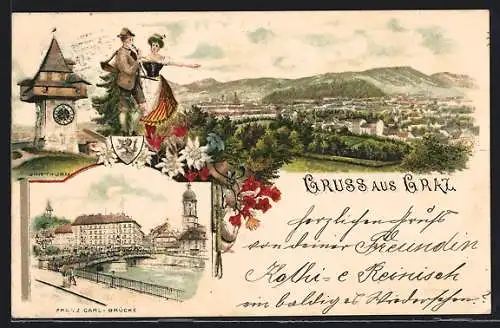 UHRTHURM
GRUSS AUS GRAZ
herzlichen Gruß
von deiner Freundin
Kathi-e Reinisch
um baldiges Wiedersehen.
FRANZ CARL-BRÜCKE